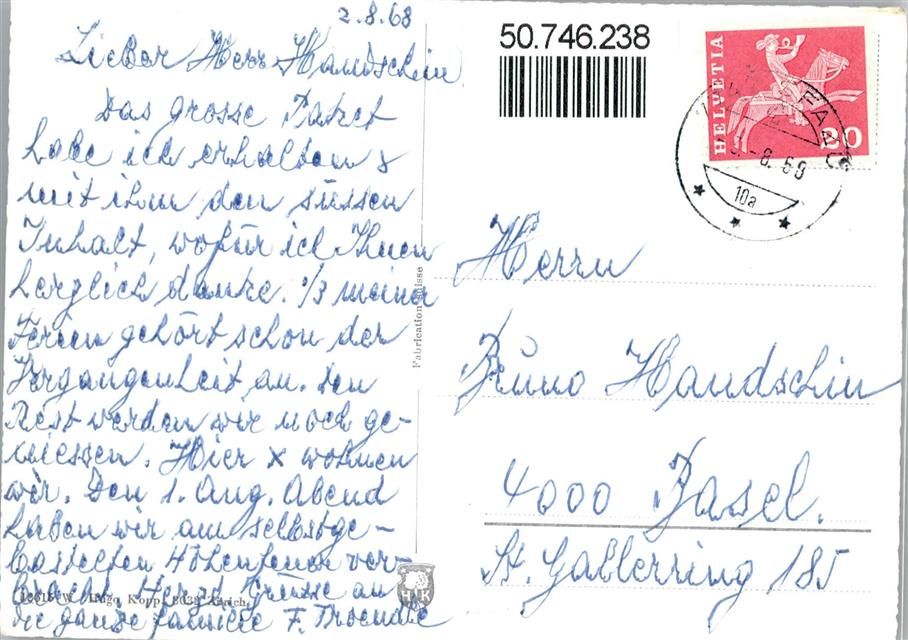 2.8.68
Lieber Herr Handschin
Das grosse Paket
habe ich erhalten &
mit ihm den süssen
Inhalt, wofür ich Ihnen
herzlich danke. 1/3 meiner
Ferien gehört schon der
Vergangenheit an. Den
Rest werden wir noch ge-
niessen. Hier x wohnen
wir. Den 1. Aug. Abend
haben wir am selbstge-
bastelten Höhenfeuer ver-
bracht. Herzl. Grüsse an
die ganze Familie F.
Hugo Kopp, Zürich
Fabrication Suisse
HK
50.746.238
HELVETIA
20
8.68
10a
Herrn
Bruno Handschin
4000 Basel.
St. Gallerring 185